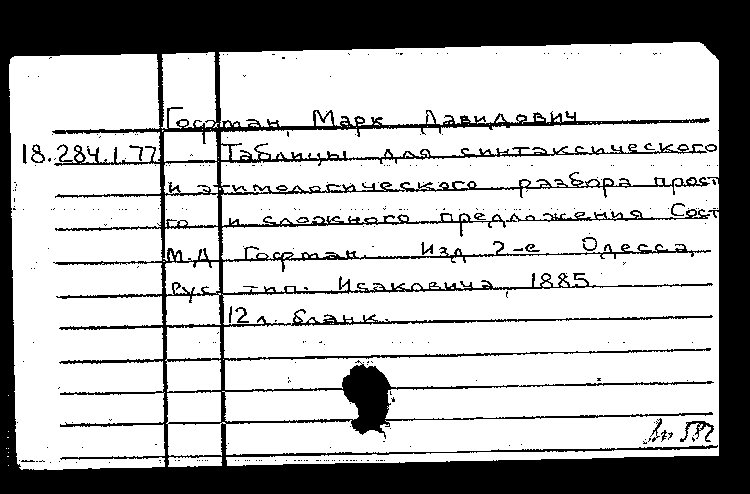 Гофман, Марк Давидович
18.284.1.77 Таблицы для синтаксического
и этимологического разбора прост
го и сложного предложения. Сост
М.Д. Гофман. Изд. 2-е. Одесса,
Рус. тип. Исаковича, 1885.
12 л. бланк.
582